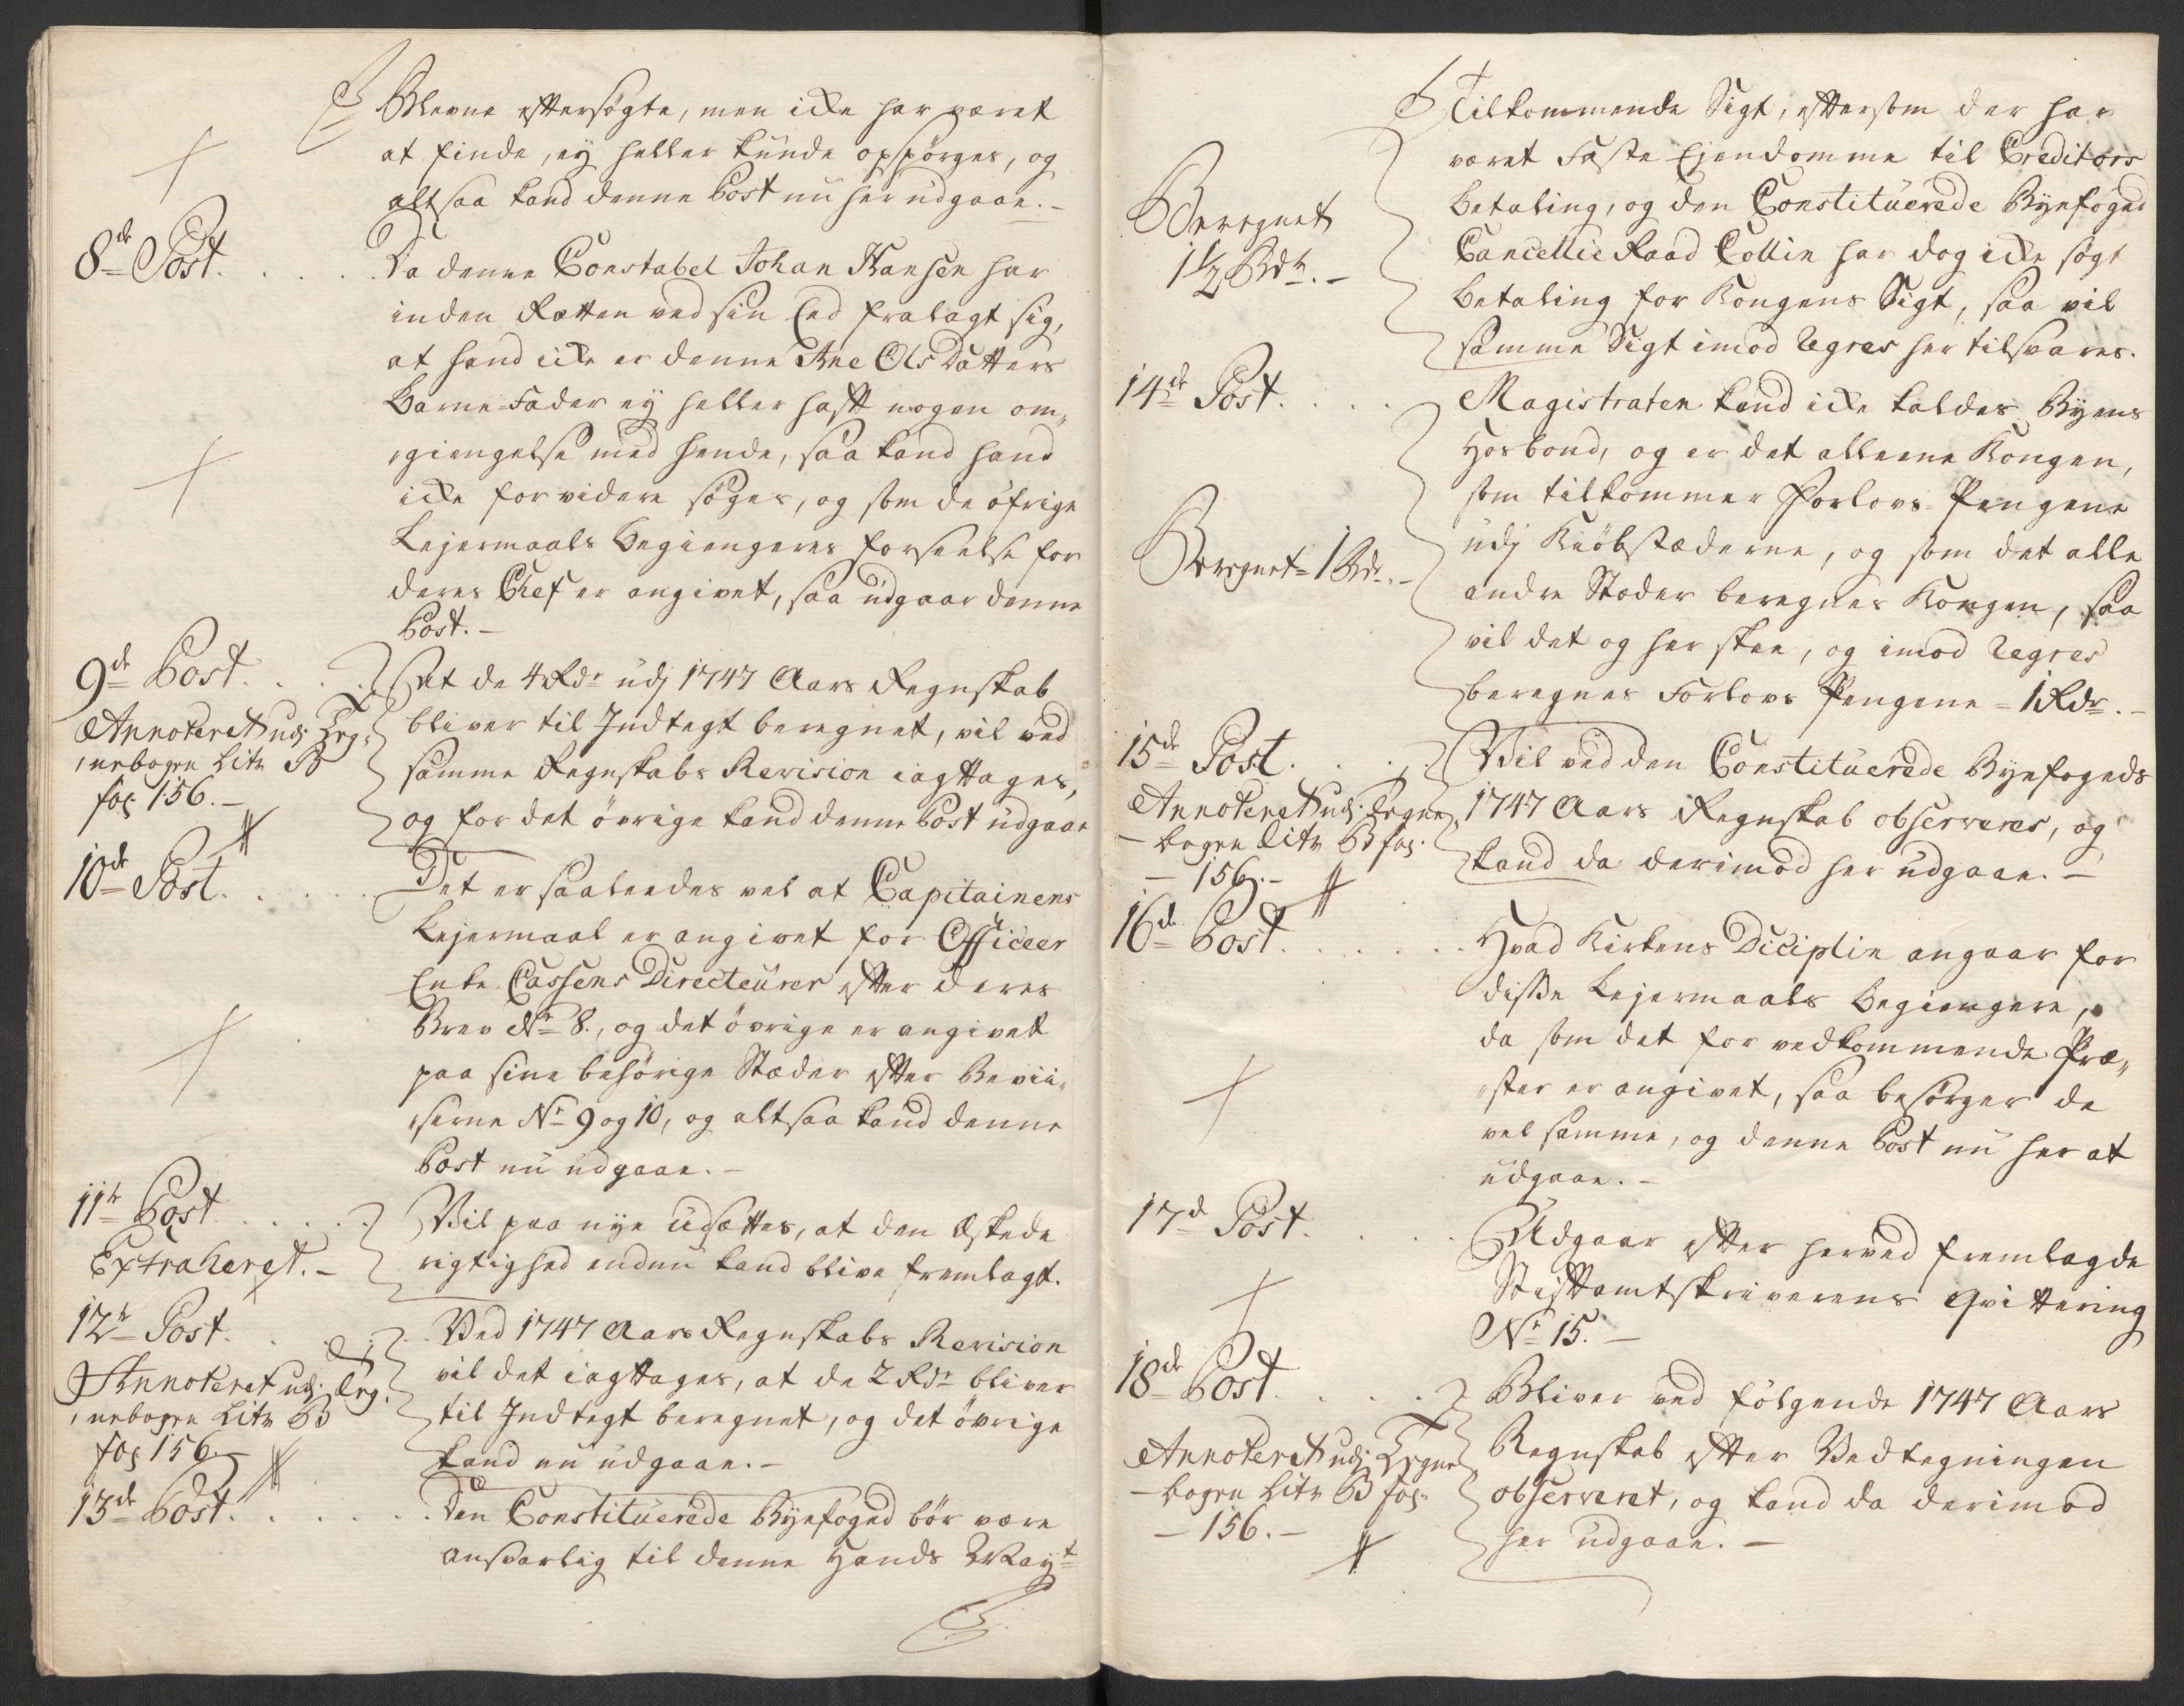 Blevne efftersøgte, men icke har været
at finde, ej heller kunde opspørges, og
altsaa kand denne Post nu her udgaae. -
8de Post. . . . .
Da denne Constabel Johan Hansen har
inden Rætten ved sin Eed fralagt sig,
at hand icke er denne Ane Ols Datters
Barne-Fader ej heller hafft nogen om„
„giengelse med hende, saa kand hand
icke for videre søges, og som de øfrige
Lejermaals Begiengeres forseelse for
deres Chef er angivet, saa udgaar denne
Post. -
9de Post. . . .
Annoteret udj Teg„
„nebogen Litr B
fol 156. -
At de 4 Rdr udj 1747 Aars Regnskab
bliver til Indtegt beregnet, vil ved
samme Regnskabs Revision iagttages,
og for det øvrige kand denne Post udgaae
10de Post. . . . .
Det er saaledes vel at Capitainens
Lejermaal er angivet for Officeer
Enke Cassens Directeurer effter deres
Brev No 8., og det øvrige er angivet
paa sine behørige Stæder effter Bevii„
„serne No 9 og 10, og altsaa kand denne
Post nu udgaae. -
11te Post . . . . .
Extraheret. -
Vil paa nye udsættes, at den Æskede
rigtighed endnu kand blive fremlagt.
12te Post. . . .
Annoteret udj Teg„
„nebogen Litr B
fol 156. -
Ved 1747 Aars Regnskabs Revision
vil det iagttages, at de 2 Rdr bliver
til Indtegt beregnet, og det øvrige
kand nu udgaae. -
13de Post. . . . . .
Den Constituerede Byefoged bør være
ansvarlig til denne Hands Mayt
Tilkommende Sigt, efftersom der har
været Faste Ejendomme til Creditors
Betaling, og den Constituerede Byefoged
Cancellie Raad Collin har dog icke søgt
Betaling for Kongens Sigt, saa vil
samme Sigt imod Regres her tilsvares.
Beregnet
1 1/2 Rdr. -
14de Post. . . .
Magistraten kand icke kaldes Byens
Hosbond, og er det alleene Kongen,
som tilkommer Forlovs-Pengene
udj Kiøbstæderne, og som det alle
andre Stæder beregnes Kongen, saa
vil det og her skee, og imod Regres
beregnes Forlovs Pengene = 1 Rdr. -
Beregnet = 1 Rdr. -
15de Post. . . .
Annoteret udj Tegne„
- bogen Litr B fol.
- 156. -
Vil ved den Constituerede Byefogeds
1747 Aars Regnskab observeres, og
kand da derimod her udgaae. -
16de Post. . . . . .
Hvad Kirkens Diciplin angaar for
disse Lejermaals Begiengere,
da som det for vedkommende Præ„
„ster er angivet, saa besørger de
vel samme, og denne Post nu her at
udgaae. -
17de Post. . . .
Udgaar effter herved fremlagde
Stifftamtskriverens Qvittering
No 15. -
18de Post. . . . .
Annoteret udj Tegne
- bogen Litr B fol.
- 156. -
Bliver ved følgende 1747 Aars
Regnskab effter Vedtegningen
observeret, og kand da derimod
her udgaae. -